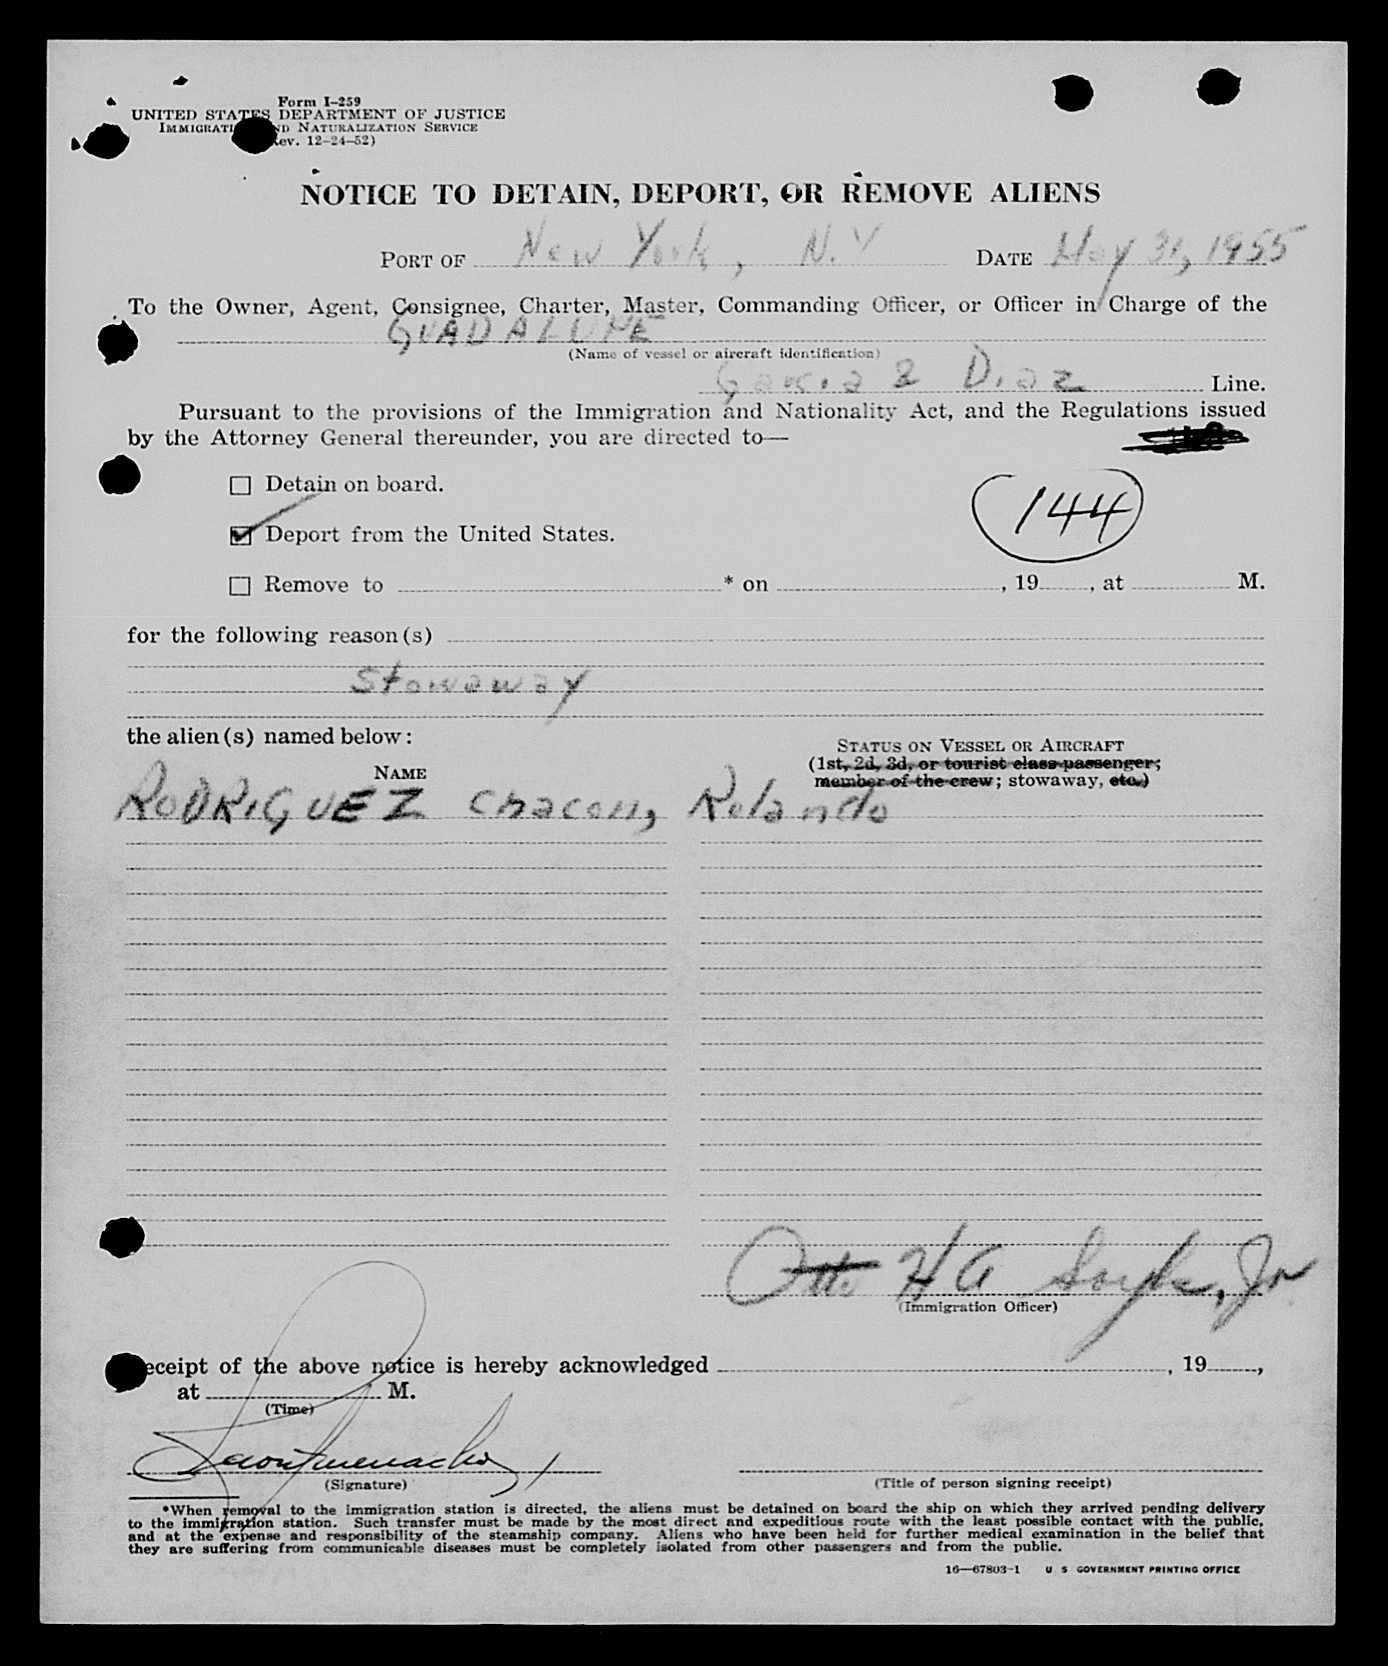 Form I-259
UNITED STATES DEPARTMENT OF JUSTICE
IMMIGRATI ND NATURALIZATION SERVICE
ev. 12-24-52)
NOTICE TO DETAIN, DEPORT, OR REMOVE ALIENS
PORT OF New York, N.Y DATE May 31, 1955
To the Owner, Agent, Consignee, Charter, Master, Commanding Officer, or Officer in Charge of the
GUADALUPE
(Name of vessel or aircraft identification)
Garcia & Diaz Line.
Pursuant to the provisions of the Immigration and Nationality Act, and the Regulations issued
by the Attorney General thereunder, you are directed to—
☐ Detain on board.
144
☑ Deport from the United States.
☐ Remove to * on , 19 , at M.
for the following reason(s)
Stowaway
the alien(s) named below:
STATUS ON VESSEL OR AIRCRAFT
(1st, 2d, 3d, or tourist class passenger;
NAME
member of the crew; stowaway, etc.)
RODRIGUEZ Chacon, Rolando
Otto H A Jr
(Immigration Officer)
eceipt of the above notice is hereby acknowledged , 19 ,
at M.
(Time)
(Signature) (Title of person signing receipt)
*When removal to the immigration station is directed, the aliens must be detained on board the ship on which they arrived pending delivery
to the immigration station. Such transfer must be made by the most direct and expeditious route with the least possible contact with the public,
and at the expense and responsibility of the steamship company. Aliens who have been held for further medical examination in the belief that
they are suffering from communicable diseases must be completely isolated from other passengers and from the public.
16—67803-1 U S GOVERNMENT PRINTING OFFICE